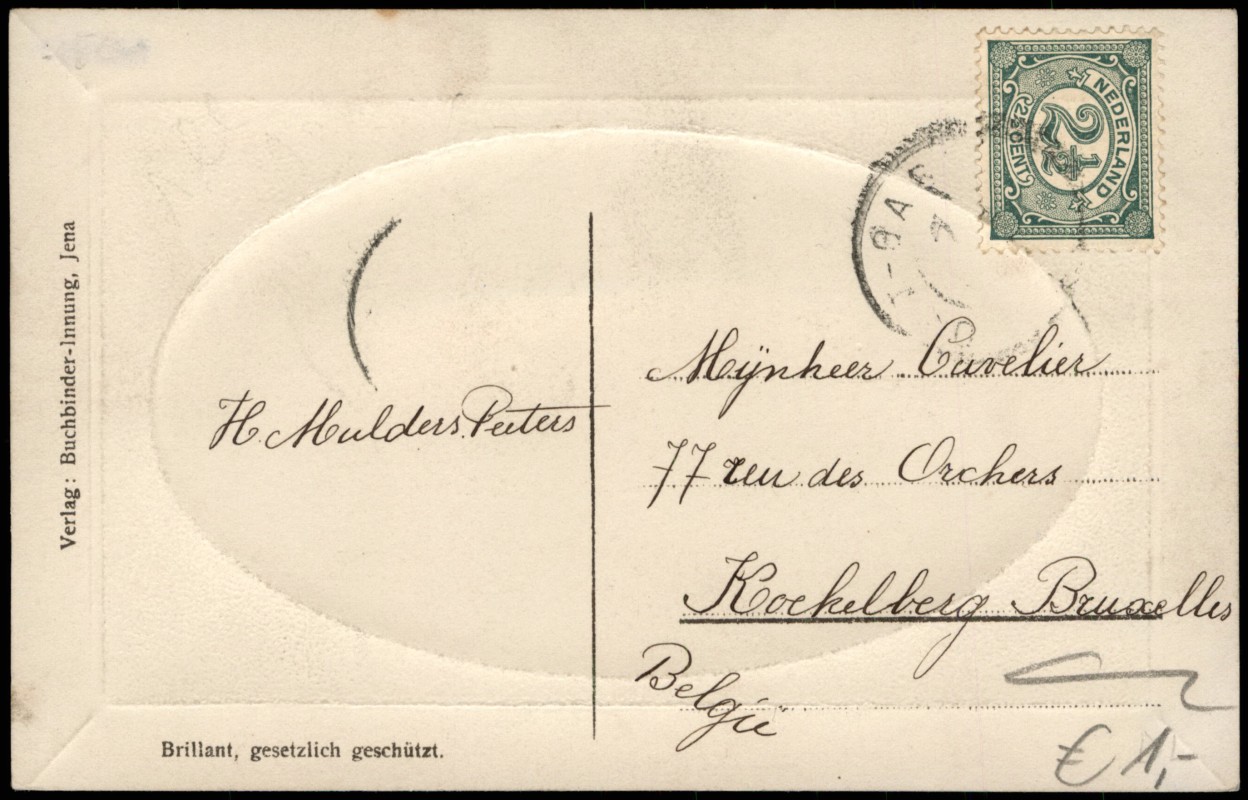 NEDERLAND
2½
2½ CENT
H. Mulders. Peeters
Mijnheer Cuvelier
77 reu des Orchers
Koekelberg Bruxelles
België
Verlag: Buchbinder-Innung, Jena
Brillant, gesetzlich geschützt.
€ 1,-